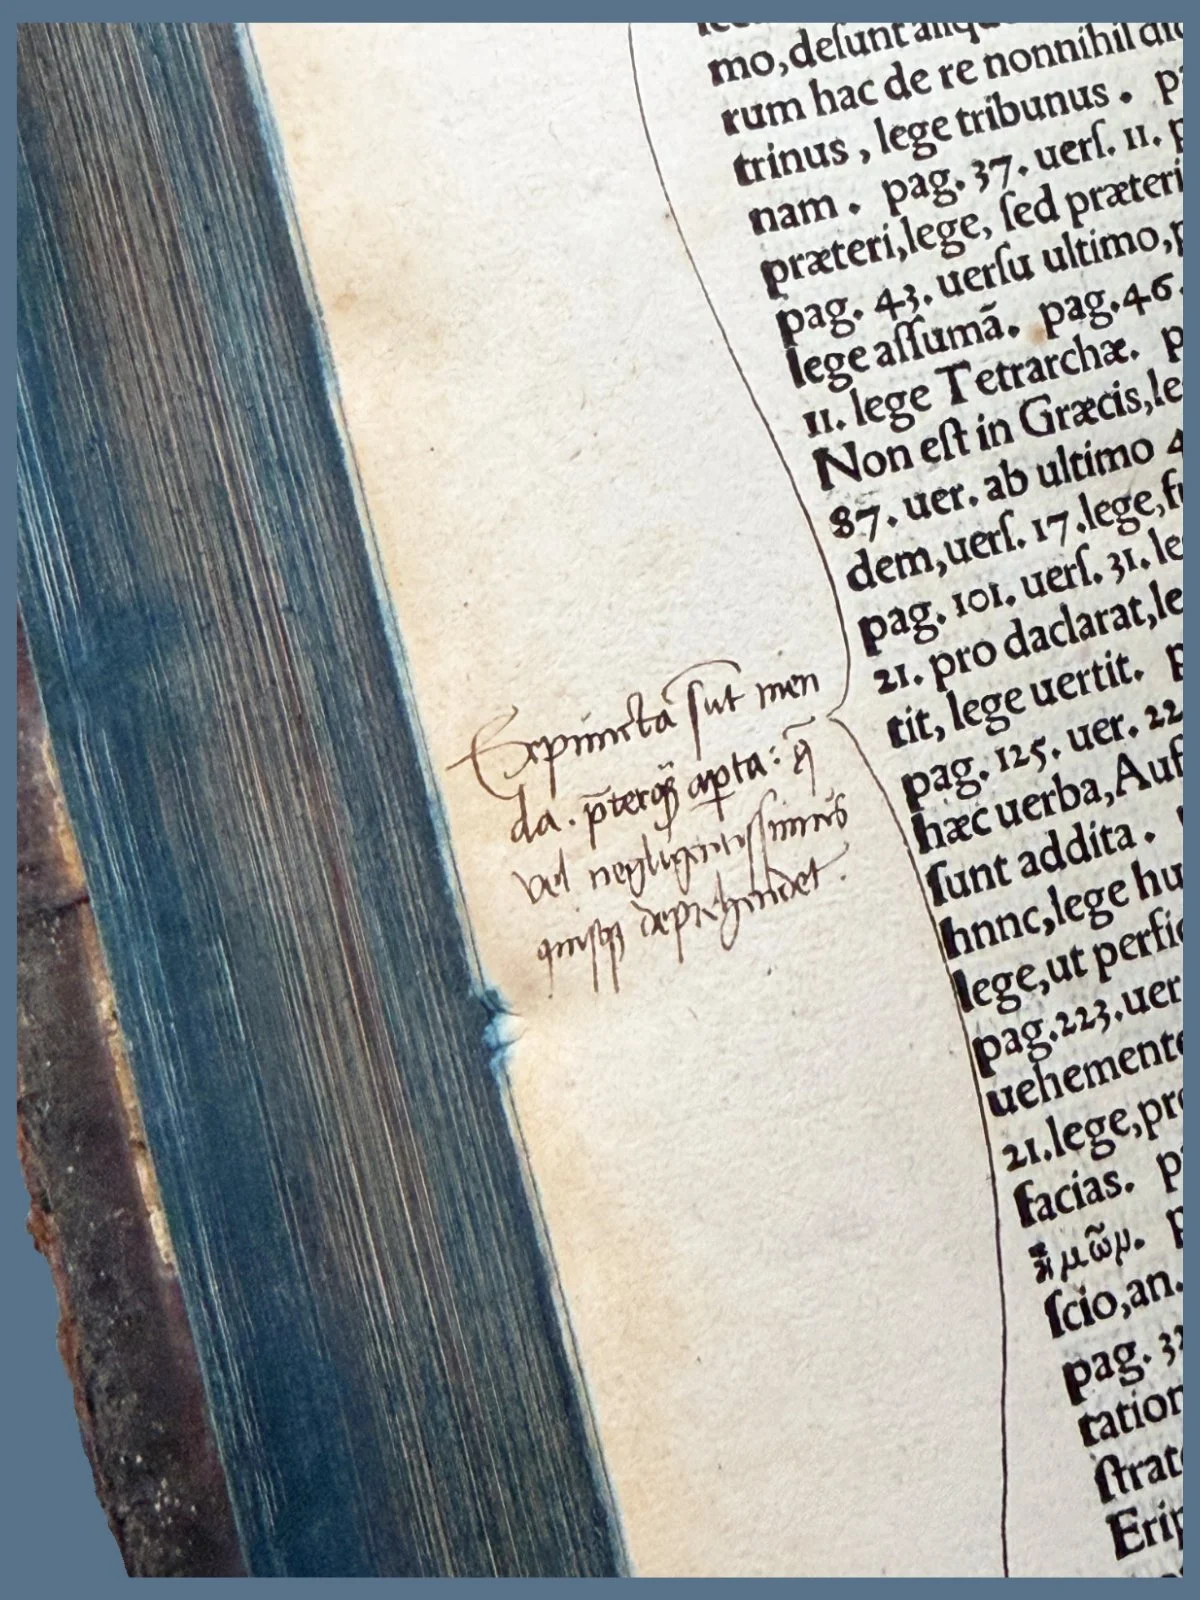 mo, desunt aliqu
rum hac de re nonnihil dic
trinus, lege tribunus. p
nam. pag. 37. uerſ. 11. p
præteri, lege, ſed præteri
pag. 43. uerſu ultimo, p
lege aſſumã. pag. 46.
11. lege Tetrarchæ. p
Non eſt in Græcis, le
87. uer. ab ultimo 4
dem, uerſ. 17. lege, fu
pag. 101. uerſ. 31. le
21. pro daclarat, le
tit, lege uertit. p
pag. 125. uer. 22
hæc uerba, Auf
ſunt addita.
hnnc, lege hu
lege, ut perfic
pag. 223. uer
uehemente
21. lege, pro
facias. p
μῶμ. p
ſcio, an.
pag. 33
ration
ſtrat
Erip
Expuncta sũt men
da. p̃terq̃ aperta: q̃
vel negligentissimus
quisq; deprehendet.